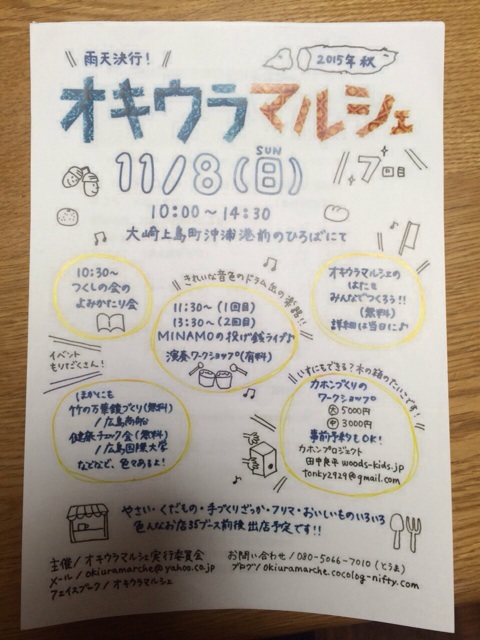 雨天決行!
2015年秋
オキウラマルシェ
11/8(日)
SUN
7回目
10:00〜14:30
大崎上島町沖浦港前のひろばにて
10:30〜
つくしの会の
よみかたり会
きれいな音色のドラム缶の楽器!!
11:30〜(1回目)
13:30〜(2回目)
MINAMOの投げ銭ライブ♪
演奏ワークショップ(有料)
オキウラマルシェの
はたを
みんなでつくろう!!
(無料)
詳細は当日に♪
イベント
もりだくさん!
ほかにも
竹の万華鏡づくり(無料)
/広島商船
健康チェック会(無料)
/広島国際大学
などなど、色々あるよ!
いすにもできる?木の箱のたいこです!
カホンづくりの
ワークショップ
大5000円
中3000円
事前予約もOK!
カホンプロジェクト
田中良平 woods-kids.jp
tonky2929@gmail.com
やさい・くだもの・手づくりざっか・フリマ・おいしいものいろいろ
色んなお店35ブース前後出店予定です!!
主催/オキウラマルシェ実行委員会
メール/okiuramarche@yahoo.co.jp
フェイスブック/オキウラマルシェ
お問い合わせ/080-5066-7010(とうま)
ブログ/okiuramarche.cocolog-nifty.com